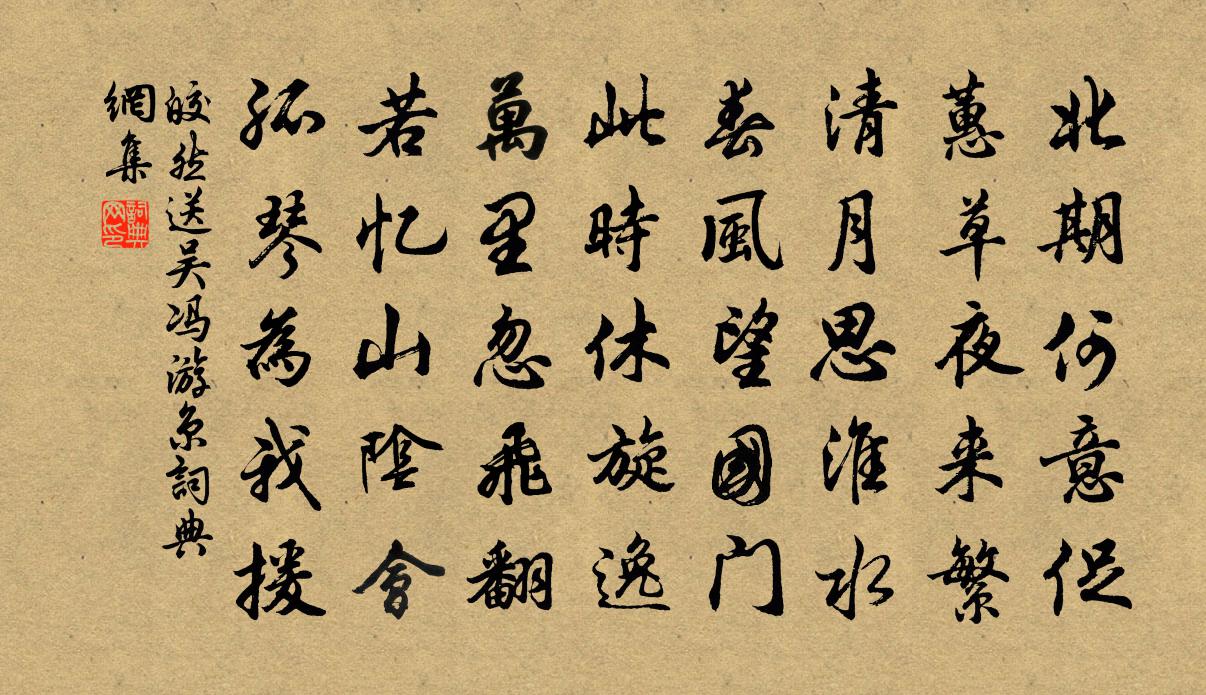 北期何意促
蕙草夜来繁
清月思淮水
春風望國门
此時休旋逸
萬里忽飛翻
若忆山陰會
孤琴為我援
皎然送吴冯游京詞典
網集
詞典網印